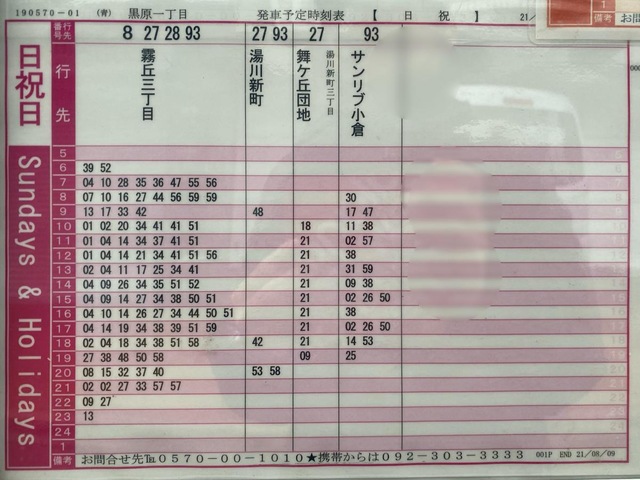 190570-01 (青) 黒原一丁目 発車予定時刻表 【 日 祝 】 21/
備考 お問
番号 行先 8 27 28 93 27 93 27 93
日祝日
行先 霧丘三丁目 湯川新町 舞ケ丘団地 湯川新町三丁目 サンリブ小倉
Sundays & Holidays
5
6 39 52
7 04 10 28 35 36 47 55 56
8 07 10 16 27 44 56 59 59 30
9 13 17 33 42 48 17 47
10 01 02 20 34 41 41 51 18 11 38
11 01 04 14 34 37 41 51 21 02 57
12 01 04 14 21 34 41 51 56 21 38
13 02 04 11 17 25 34 41 21 31 59
14 04 09 26 34 35 51 52 21 09 38
15 04 09 14 27 34 38 50 51 21 02 26 50
16 04 10 14 26 27 34 44 50 51 21 38
17 04 14 19 34 38 39 51 59 21 02 26 50
18 02 04 18 34 38 51 58 42 21 14 53
19 27 38 48 50 58 09 25
20 08 15 32 37 40 53 58
21 02 02 27 33 57 57
22 09 27
23 13
24
1
備考 お問合せ先℡0570-00-1010★携帯からは092-303-3333 001P END 21/08/09